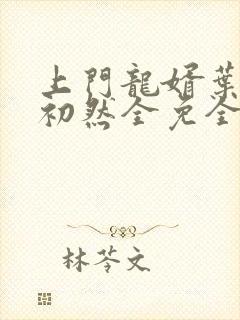 上門龍婿葉
初然全免全
林苓文